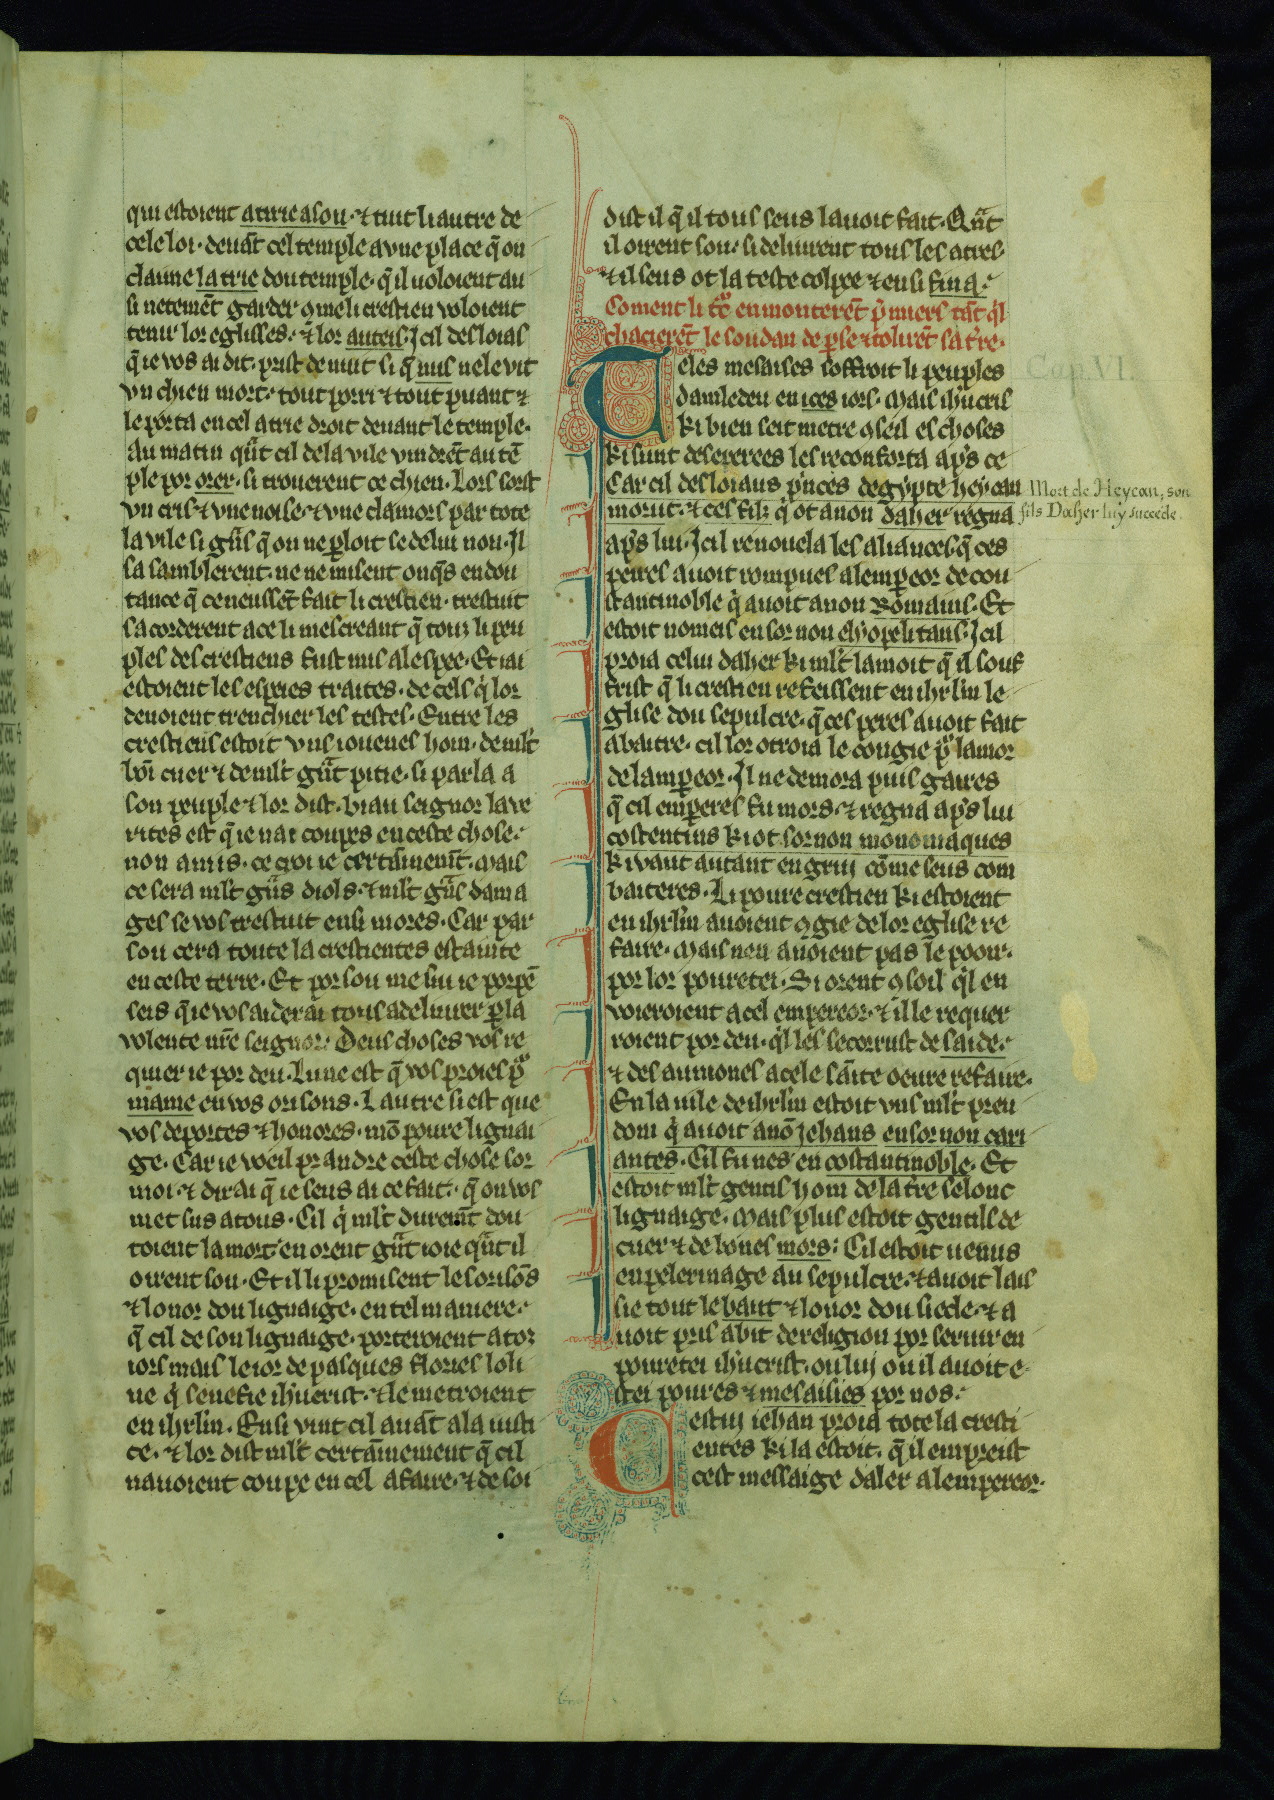 qui estoient atirie a sou· ⁊ tuit li autre de
cele loi· deuāt cel temple a vne place q̄ on
claime la trie dou temple· q̄ il uoloient au
si netemēt garder 9me li crestien voloient
tenir lor eglisses· ⁊ lor auteis· J cil desloias
q̄ ie vos ai dit· prist de nuit si q̄ nuis ne le vit
vn chien mort· tout porri ⁊ tout puant ⁊
le porta en cel atrie droit deuant le temple·
Au matin qūt cil de la vile vindrēt au tē
ple por orer· si trouerent ce chien· Lors sorst
vn cris ⁊ vne noise· ⁊ vne clamors par tote
la vile si gūs q̄ on ne ꝑloit se de lui non· Jl
sa samblerent· ne ne misent onq̄s en dou
tance q̄ ce neussēt fait li crestien· trestuit
sacorderent a ce li mescreant q̄ touz li peu
ples des crestiens fust mis a lespee· Et iai
estoient les espees traites· de cels q̇ lor
deuoient trenchier les testes· Entre les
crestiens estoit vns iouenes hom· de ml̄t
bōi cuer ⁊ de ml̄t gūt pitie· si parla a
son peuple ⁊ lor dist· biau seignor la ve
rites est q̄ ie nai coupes en ceste chose·
non amis· ce croi ie certainemēt· Mais
ce sera ml̄t gūs diols· ⁊ ml̄t gūs dama
ges se vos trestuit ensi mores· Car par
sou cera toute la crestientes estainte
en ceste terre· Et por sou me sui ie porpē
seis q̄ ie vos aiderai tous a deliurer ꝑ la
volente nr̄e seignor· Deus choses vos re
quier ie por deu· Lune est q̄ vos proies pͦ
mame en vos orisons· L autre si est que
vos deportes ⁊ honores· mō poure lignai
ge· Car ie woeil prandre ceste chose sor
moi· ⁊ dirai q̄ ie seus ai ce fait· q̄ on vos
met sus a tous· Cil q̇ ml̄t duremēt dou
toient la mort en orent gūt ioie qūt il
oirent sou· Et il li promisent les orisōs
⁊ lonor dou lignaige· en tel maniere·
q̄ cil de sou lignaige· porteroient a toz
iors mais le ior de pasques flories loli
ue q̇ senefie ih̄ucrist· ⁊ le metroient
en ihrl̄m· Ensi vint cil auāt a la iusti
ce· ⁊ lor dist ml̄t certainement q̄ cil
nauoient coupe en cel afaire· ⁊ de soi
dist il q̄ il tous seus lauoit fait· Qūt
il oirent sou· si deliurent tous les atres
⁊ il seus ot la teste colpee ⁊ ensi fina·
Coment li tr̄ en monterēt p̄miers tāt ql
chacierēt le soudan de ꝑse ⁊ tolirēt sa tr̄e·
Teles mesaises soffroit li peuples
damledeu en ices iors· Mais ih̄ucris
ki bien seit metre 9seil es choses
ki sunt desesperees les reconforta ap̄s ce
Car cil desloiaus p̄nces degypte heycan
morut· ⁊ ces filz q̇ ot anon daher regna
ap̄s lui· J cil renouela les aliances· q̄ ces
peires auoit rompues a lempeor de cou
stantinoble q̇ auoit anon Romains· Et
estoit nomeis en sor non elyopelitans· J cil
proia celui daher ki ml̄t lamoit q̄ il souf
frist q̄ li crestien refeissent en ihrl̄m le
glise dou sepulcre· q̄ ces peres auoit fait
abatre· cil lor otroia le congie pͦ lamor
de lampeor· Jl ne demora puis gaires
q̄ cil emperes fu mors· ⁊ regna ap̄s lui
costentins ki ot sor non monomaques
ki vaut autant en griu cōme seus com
baiteres· Li poure crestien ki estoient
en ihrl̄m auoient 9gie de lor eglise re
faire· Mais nen auoient pas le pooir·
por lor pouretei· Si orent 9soil ql en
voieroient a cel empereor· ⁊ il le requer
roient por deu· ql les secorrust de saide·
⁊ des aumones a cele sāite oeure refaire·
En la uile de ihrl̄m estoit vns ml̄t preu
dom q̇ auoit anō jehans en sor non cari
antes· Cil fu nes en costantinoble· Et
estoit ml̄t gentis hom de la tr̄e selonc
lignaige· Mais plus estoit gentils de
cuer ⁊ de bones mors: Cil estoit uenus
en pelerinage au sepulcre· ⁊ auoit lais
sie tout le baut ⁊ lonor dou siecle· ⁊ a
uoit pris abit de religion por seruir en
pouretei ih̄ucrist· ou luj ou il auoit e-
stei poures ⁊ mesaisies por nos·
Cestui iehan proia tote la cresti
entes ki la estoit· q̄ il empreist
cest messaige daler a lempereor·
Cap. VI.
Mort de Heycan, son
fils Daher luy succede.